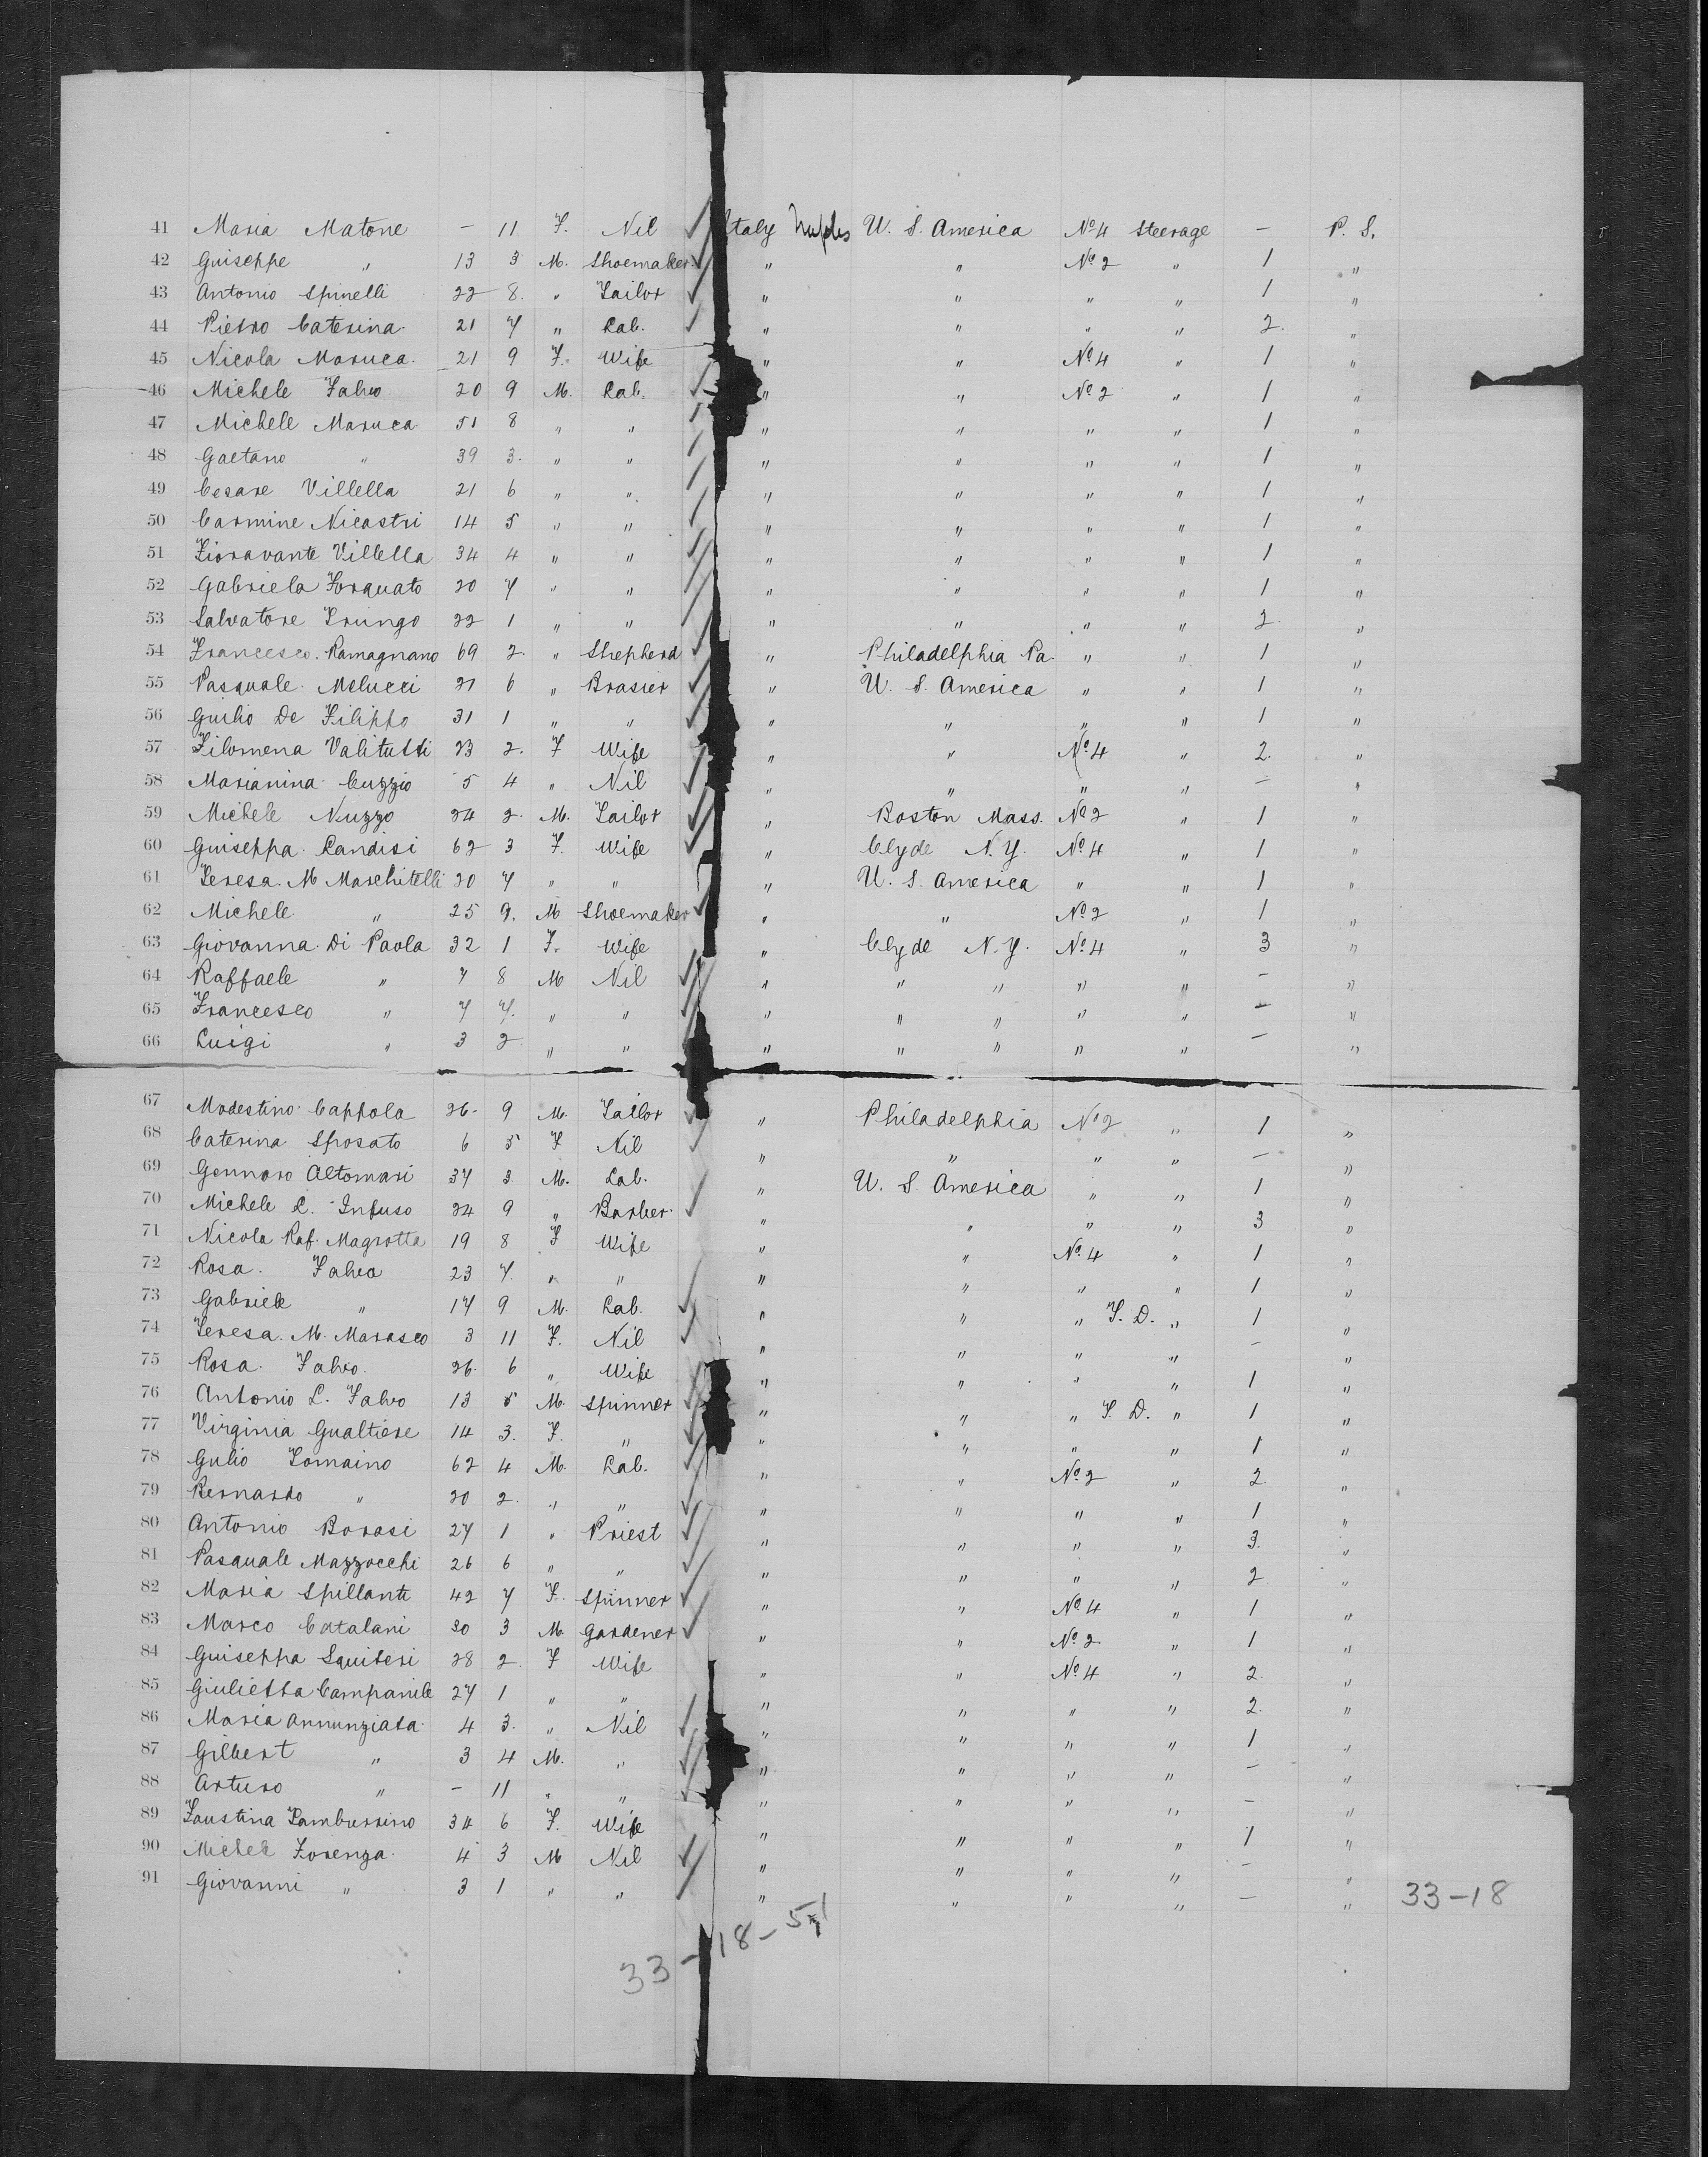 41 Maria Matone – 11 F. Nil Italy Naples U. S. America No 4 Steerage – P. S.
42 Guiseppe " 13 3 M. Shoemaker " " No 2 " 1 "
43 Antonio Spinelli 22 8. " Tailor " " " " 1 "
44 Pietro Caterina 21 7 " Lab. " " " " 2. "
45 Nicola Maruca 21 9 F. Wife " " No 4 " 1 "
46 Michele Falvo 20 9 M. Lab. " " No 2 " 1 "
47 Michele Maruca 51 8 " " " " " " 1 "
48 Gaetano " 39 3. " " " " " " 1 "
49 Cesare Villella 21 6 " " " " " " 1 "
50 Carmine Nicastri 14 5 " " " " " " 1 "
51 Fioravante Villella 34 4 " " " " " " 1 "
52 Gabriela Torquato 20 7 " " " " " " 1 "
53 Salvatore Trungo 22 1 " " " " " " 2. "
54 Francesco. Ramagnano 69 2. " Shepherd " Philadelphia Pa. " " 1 "
55 Pasquale Melucci 21 6 " Brasier " U. S. America " " 1 "
56 Guilio De Filippo 31 1 " " " " " " 1 "
57 Filomena Valitutti 23 2. F Wife " " No 4 " 2. "
58 Marianina Cuzzio 5 4 " Nil " " " " – "
59 Michele Nuzzo 24 2. M. Tailor " Boston Mass. No 2 " 1 "
60 Guiseppa Landisi 62 3 F. Wife " Clyde N. Y. No 4 " 1 "
61 Teresa. M Maschitelli 20 7 " " " U. S. America " " 1 "
62 Michele " 25 9. M Shoemaker " " No 2 " 1 "
63 Giovanna Di Paola 32 1 F. Wife " Clyde N. Y. No 4 " 3 "
64 Raffaele " 7 8 M Nil " " " " " – "
65 Francesco " 7 7. " " " " " " " – "
66 Luigi " 3 2 " " " " " " " – "
67 Modestino Cappola 26 9 M. Tailor " Philadelphia No 2 " 1 "
68 Caterina Sposato 6 5 F Nil " " " " – "
69 Gennaro Altomari 37 3 M. Lab. " U. S. America " " 1 "
70 Michele L. Infuso 24 9 " Barber " " " " 3 "
71 Nicola Raf. Magrotta 19 8 F Wife " " No 4 " 1 "
72 Rosa. Falvo 23 7. " " " " " " 1 "
73 Gabriele " 17 9 M. Lab. " " " S. D. " 1 "
74 Teresa. M. Marasco 3 11 F. Nil " " " " – "
75 Rosa. Falvo. 26. 6 " Wife " " " " 1 "
76 Antonio L. Falvo 13 5 M. Spinner " " " S. D. " 1 "
77 Virginia Gualtiere 14 3. F. " " " " " 1 "
78 Gulio Tomaino 62 4 M. Lab. " " No 2 " 2. "
79 Bernardo " 20 2. " " " " " " 1 "
80 Antonio Borasi 27 1 " Priest " " " " 3. "
81 Pasquale Mazzocchi 26 6 " " " " " " 2 "
82 Maria Spillante 42 7 F. Spinner " " No 4 " 1 "
83 Marco Catalani 30 3 M. Gardener " " No 2. " 1 "
84 Guiseppa Squiteri 28 2. F Wife " " No 4 " 2. "
85 Giulietta Campanile 27 1 " " " " " " 2. "
86 Maria Annunziata 4 3. " Nil " " " " 1 "
87 Gilbert " 3 4 M. " " " " " – "
88 Arturo " – 11 " " " " " " – "
89 Faustina Tamburrino 34 6 F. Wife " " " " 1 "
90 Michele Forenza 4 3 M Nil " " " " – "
91 Giovanni " 3 1 " " " " " " – " 33-18
33-18-51